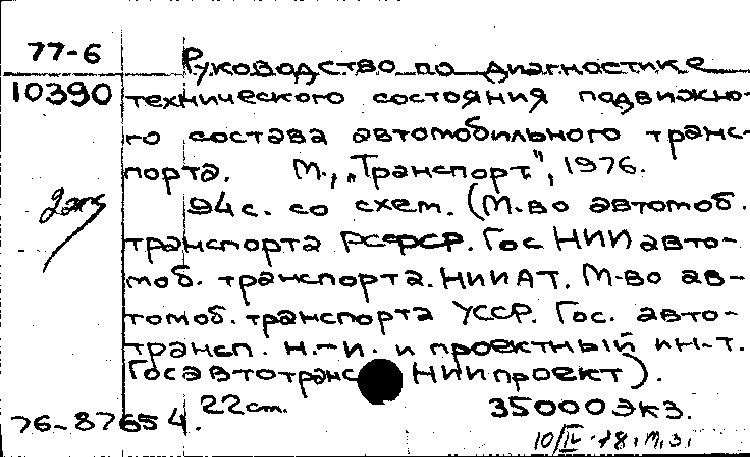 77-6 Руководство по диагностике
10390 технического состояния подвижно-
го состава автомобильного транс-
порта. М., „Транспорт", 1976.
94 с. со схем. (М-во автомоб.
транспорта РСФСР. Гос НИИ авто-
моб. транспорта. НИИАТ. М-во ав-
томоб. транспорта УССР. Гос. авто-
трансп. н.-и. и проектный ин-т.
Госавтотранс НИИпроект).
22 cm. 35000 экз.
76-87654.
10/IV-78. М.З.